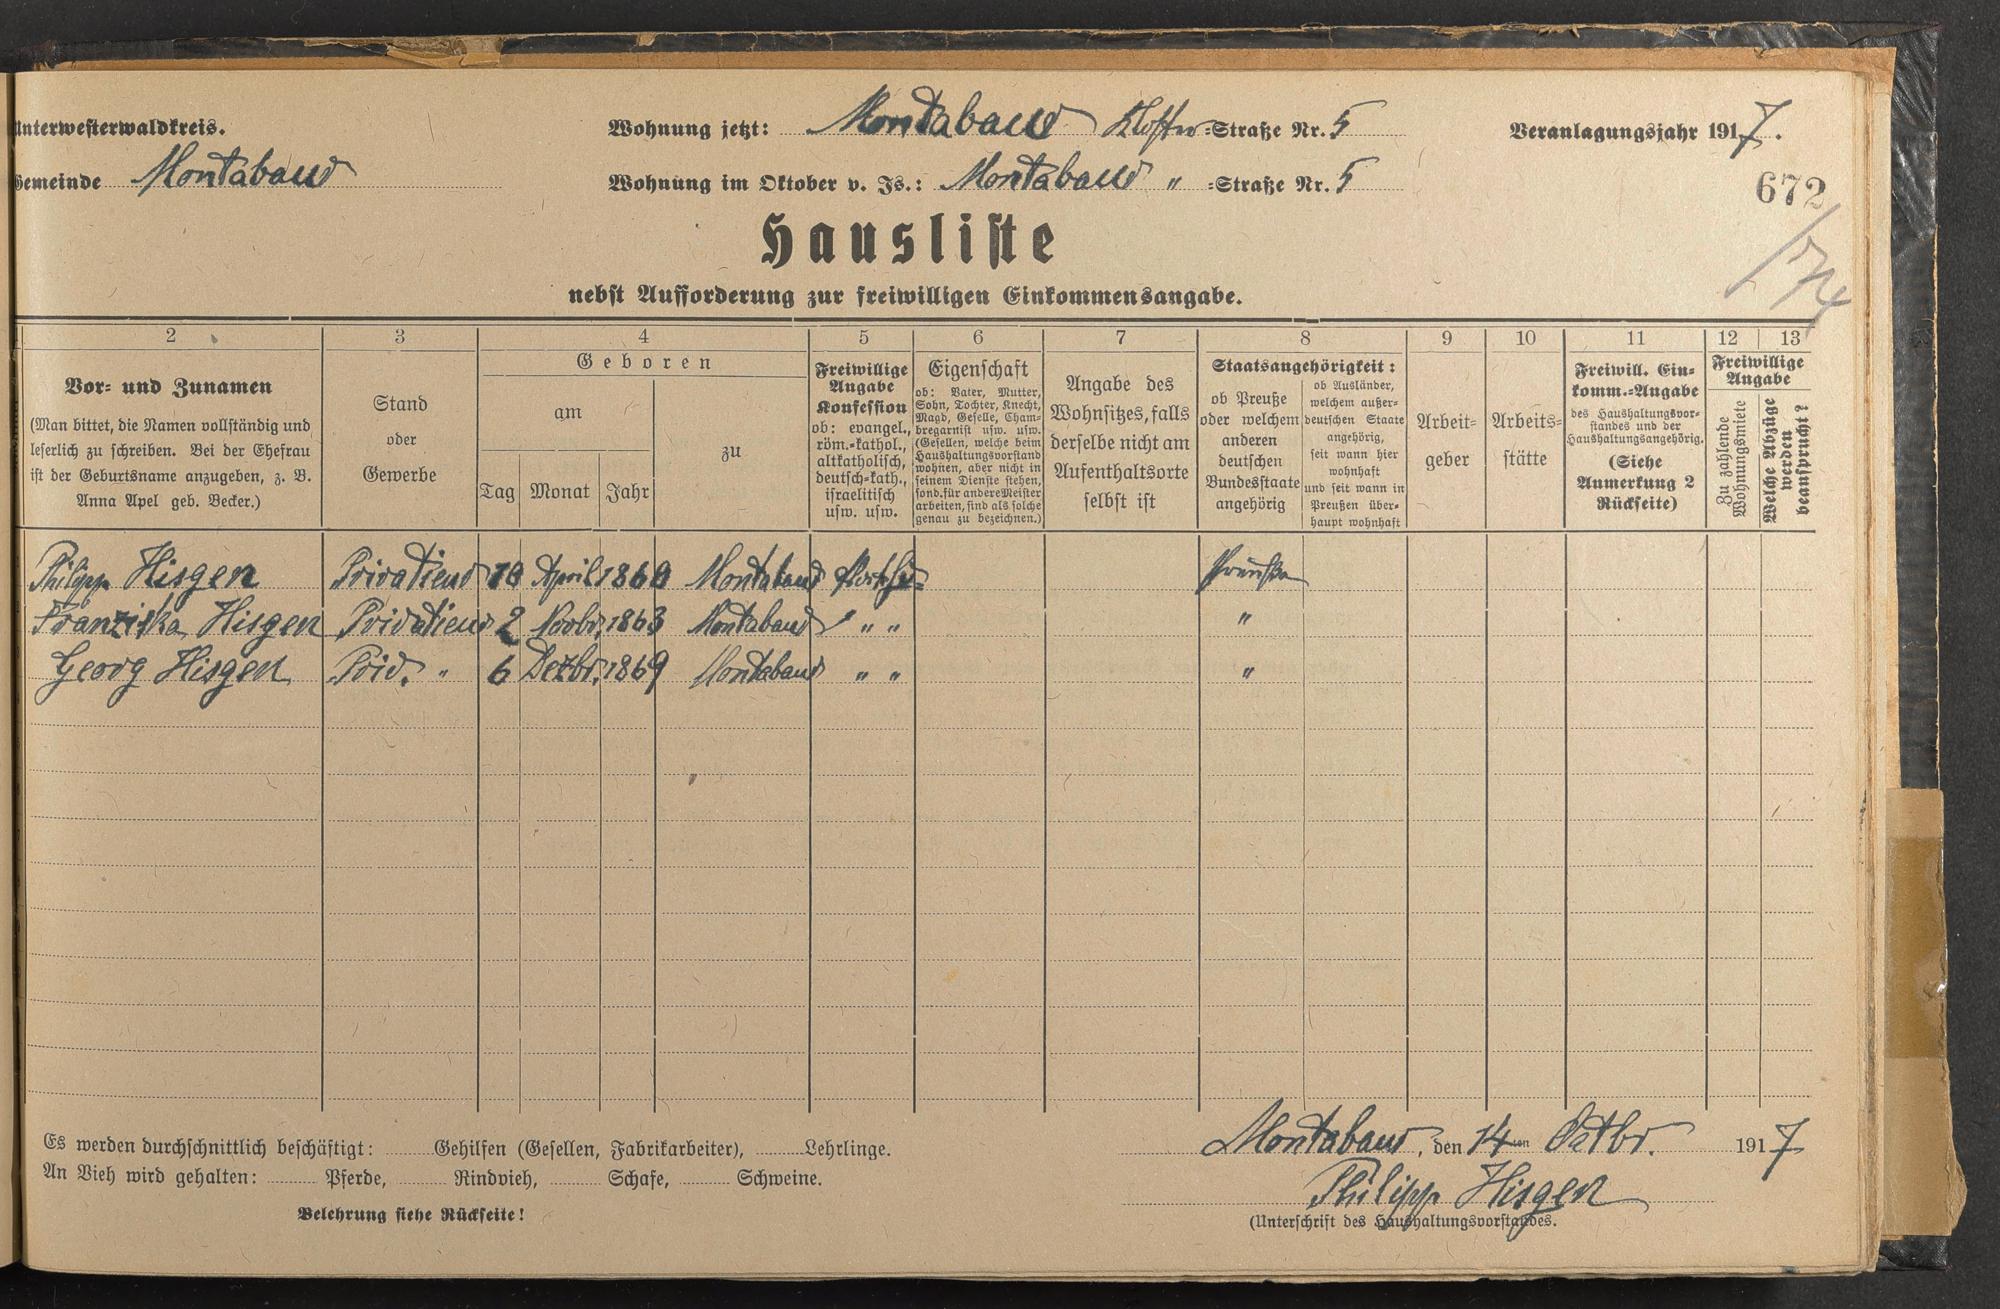 Unterwesterwaldkreis.
Wohnung jetzt: Montabaur Kloster-Straße Nr. 5
Veranlagungsjahr 1917.
Gemeinde Montabaur
Wohnung im Oktober v. Js.: Montabaur " -Straße Nr. 5
672
Hausliste
nebst Aufforderung zur freiwilligen Einkommensangabe.
2 3 4 5 6 7 8 9 10 11 12 13
Vor- und Zunamen
(Man bittet, die Namen vollständig und
leserlich zu schreiben. Bei der Ehefrau
ist der Geburtsname anzugeben, z. B.
Anna Apel geb. Becker.)
Stand
oder
Gewerbe
Geboren
am
Tag Monat Jahr
zu
Freiwillige
Angabe
Konfession
ob: evangel.,
röm.-kathol.,
altkatholisch,
deutsch-kath.,
israelitisch
usw. usw.
Eigenschaft
ob: Vater, Mutter,
Sohn, Tochter, Knecht,
Magd, Geselle, Cham-
bregarnist usw. usw.
(Gesellen, welche beim
Haushaltungsvorstand
wohnen, aber nicht in
seinem Dienste stehen,
sond. für andere Meister
arbeiten, sind als solche
genau zu bezeichnen.)
Angabe des
Wohnsitzes, falls
derselbe nicht am
Aufenthaltsorte
selbst ist
Staatsangehörigkeit:
ob Preuße
oder welchem
anderen
deutschen
Bundesstaate
angehörig
ob Ausländer,
welchem außer-
deutschen Staate
angehörig,
seit wann hier
wohnhaft
und seit wann in
Preußen über-
haupt wohnhaft
Arbeit-
geber
Arbeits-
stätte
Freiwill. Ein-
komm.-Angabe
des Haushaltungsvor-
standes und der
Haushaltungsangehörig.
(Siehe
Anmerkung 2
Rückseite)
Freiwillige
Angabe
Zu zahlende
Wohnungsmiete
Welche Abzüge
werden
beansprucht?
Philipp Hisgen Privatier April Montabaur Preuße
Franziska Hisgen Privatier 2 Novbr. 1863 Montabaur " " "
Georg Hisgen Priv. " 6 Dezbr. 1869 Montabaur " " "
Es werden durchschnittlich beschäftigt: Gehilfen (Gesellen, Fabrikarbeiter), Lehrlinge.
An Vieh wird gehalten: Pferde, Rindvieh, Schafe, Schweine.
Belehrung siehe Rückseite!
Montabaur, den 14ten Octbr. 1917
Philipp Hisgen
(Unterschrift des Haushaltungsvorstandes.